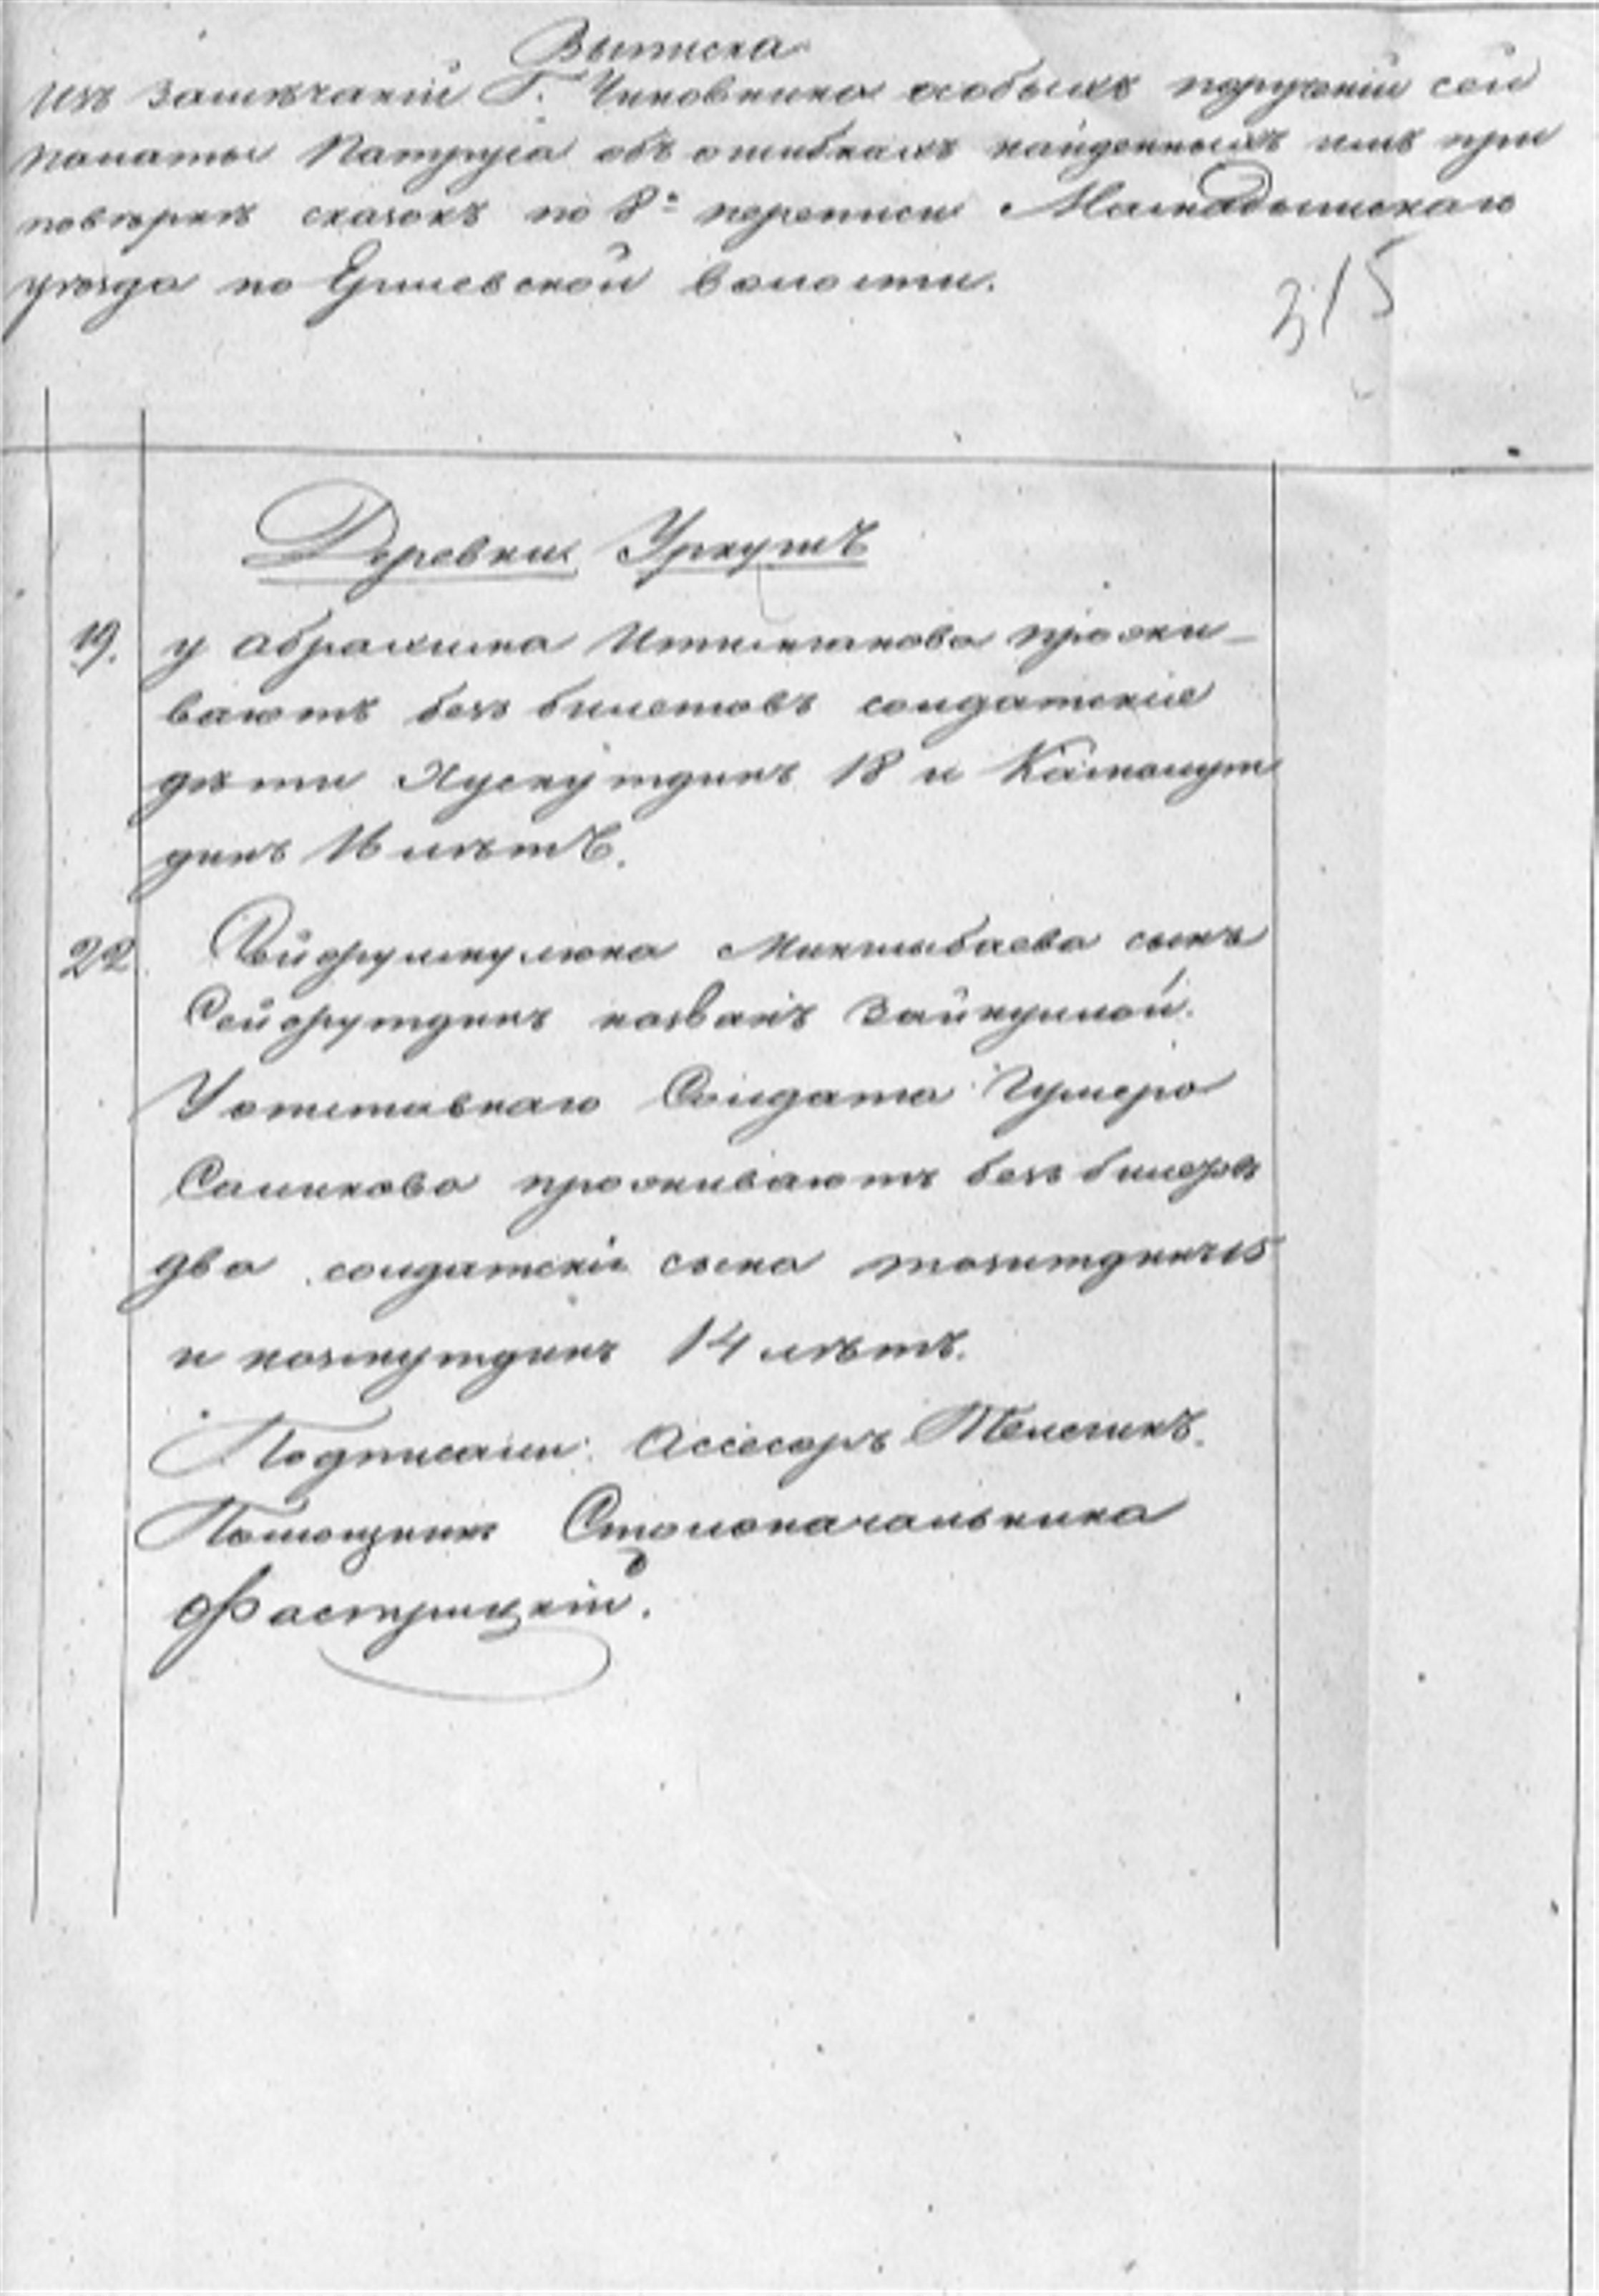 Выписка
Изъ замѣчаній Г. Чиновника особыхъ порученій сей
палаты Патруса объ ошибкахъ найденныхъ имъ при
повѣркѣ сказокъ по 8й переписи Мамадышскаго
уѣзда по волости.
315
Деревни Уркушъ
19. у Абрахима прожи-
ваютъ безъ билетовъ солдатскіе
дѣти Хуснутдинъ 18 и Камалут
динъ 16 лѣтъ.
22 Минлыбаева сынъ
Сейфутдинъ названъ Зайнуллой.
У отставнаго Солдата Гумера
Салихова проживаютъ безъ билетовъ
два солдатскіе сына 15
и 14 лѣтъ.
Подписали: Ассесоръ
Помощникъ Столоначальника